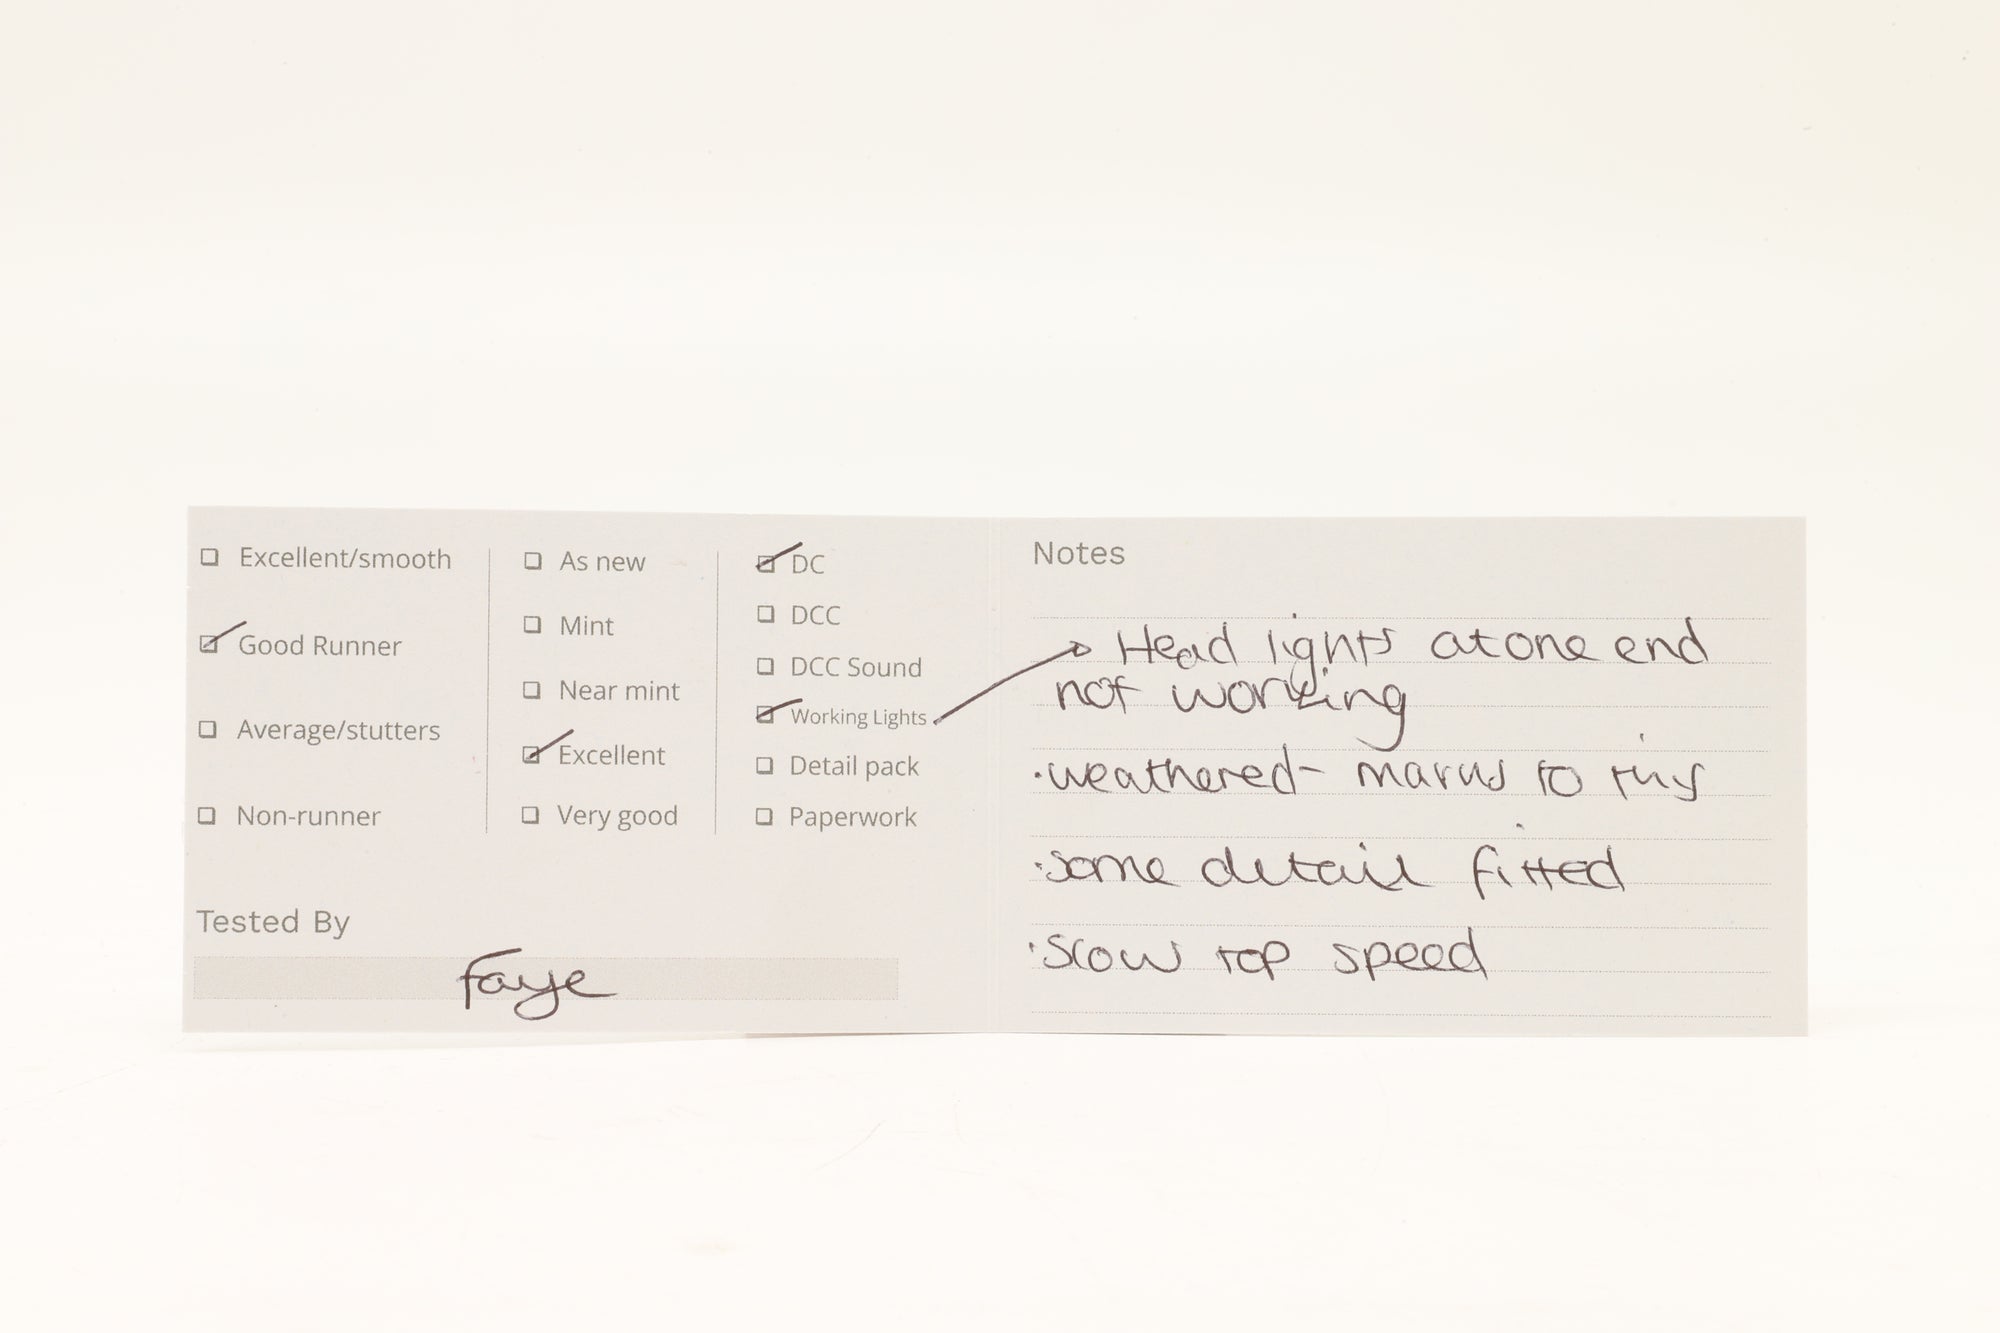 Excellent/smooth
Good Runner
Average/stutters
Non-runner
As new
Mint
Near mint
Excellent
Very good
DC
DCC
DCC Sound
Working Lights
Detail pack
Paperwork
Tested By
Faye
Notes
Head lights at one end
not working
·weathered- marks to this
·some detail fitted
·slow top speed